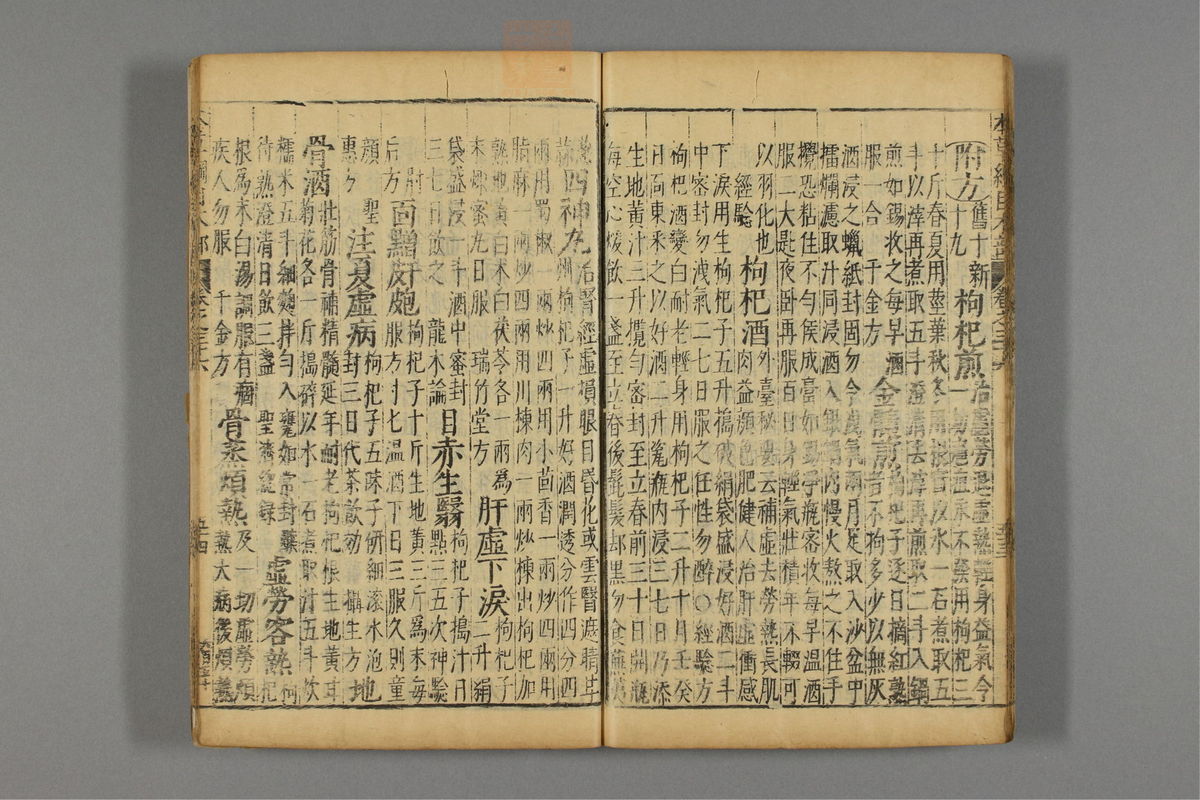 附方舊十新十九枸杞煎治虛勞退虛熱輕身益氣令一切癰疽永不發用枸杞三
十斤春夏用莖葉秋冬用根實以水一石煮取五
斗以滓再煮取五斗澄清去滓再煎取二斗入鍋
煎如錫收之每早酒服一合 千金方 金髓煎枸杞子逐日摘紅熟者不拘多少以無灰
酒浸之蠟紙封固勿令洩氣兩月足取入沙盆中
擂爛濾取汁同浸酒入銀鍋內慢火熬之不住手
攪恐粘住不勻候成膏如餳淨瓶密收每早溫酒
服二大匙夜臥再服百日身輕氣壯積年不輟可
以羽化也 經驗 枸杞酒外臺秘要云補虛去勞熱長肌肉益顏色肥健人治肝虛衝感
下淚用生枸杞子五升搗破絹袋盛浸好酒二斗
中密封勿洩氣二七日服之任性勿醉○經驗方
枸杞酒變白耐老輕身用枸杞子二升十月壬癸
日面東采之以好酒二升瓷瓶內浸三七日乃添
生地黃汁三升攪勻密封至立春前三十日開瓶
每空心煖飲一盞至立春後髭髮却黑勿食蕪荑
葱四神丸治腎經虛損眼目昏花或雲瞖遮睛甘州枸杞子一升好酒潤透分作四分四
兩用蜀椒一兩炒四兩用小茴香一兩炒四兩用
脂麻一兩炒四兩用川楝肉一兩炒揀出枸杞加
熟地黃白朮白茯苓各一兩爲末煉蜜丸日服 瑞竹堂方 肝虛下淚枸杞子二升絹
袋盛浸一斗酒中密封三七日飲之 龍木論 目赤生瞖枸杞子搗汁日
點三五次神驗 肘后方 面䵟皯皰枸杞子十斤生地黃三斤爲末每服方寸七溫酒下日三服久則童
顏 聖惠方 注夏虛病枸杞子五味子研細滾水泡封三日代茶飲効 攝生方 地
骨酒壯筋骨補精髓延年耐老枸杞根生地黃甘菊花各一斤搗碎以水一石煮取汁五斗炊
糯米五斗細麴拌勻入甕如常封釀待熟澄清日飲三盞 聖濟總錄 虛勞客熱枸杞
根爲末白湯調服有痼疾人勿服 千金方 骨蒸煩熱及一切虛勞煩熱大病後煩熱